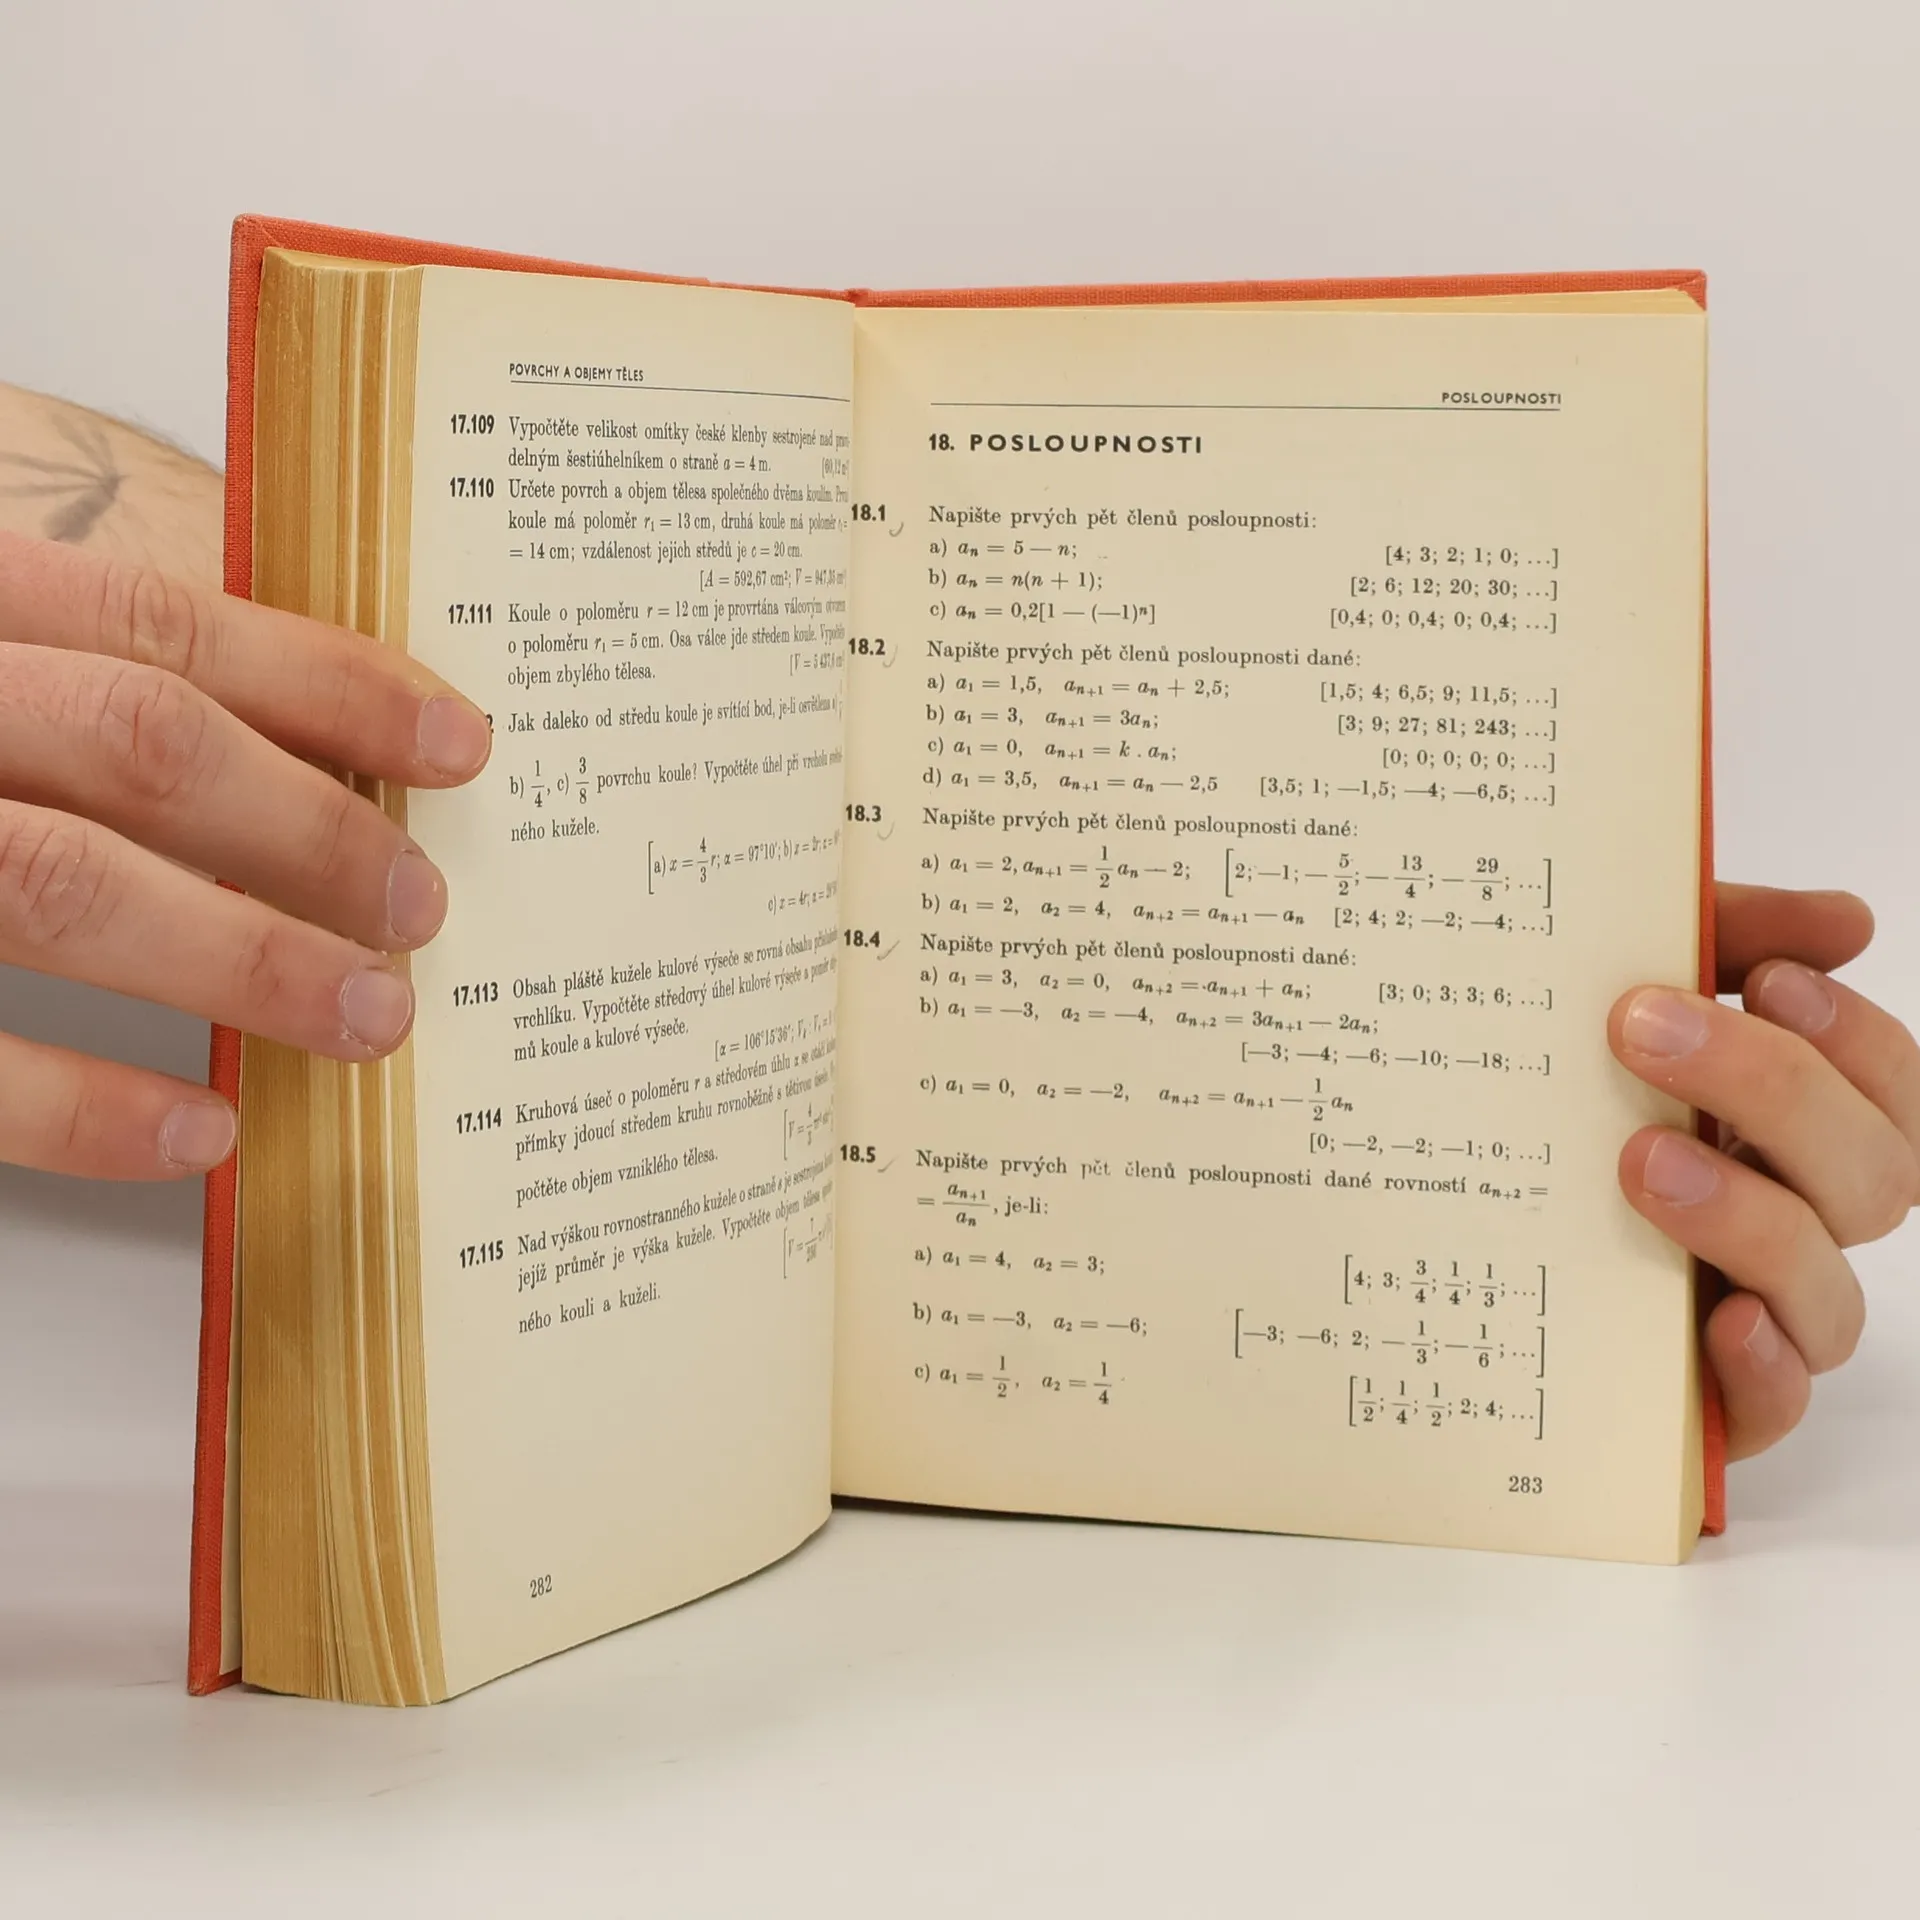 POVRCHY A OBJEMY TĚLES
17.109 Vypočtěte velikost omítky české klenby sestrojené nad
delným šestiúhelníkem o straně a = 4 m.
17.110 Určete povrch a objem tělesa společného dvěma koulím.
koule má poloměr r₁ = 13 cm, druhá koule má poloměr
= 14 cm; vzdálenost jejich středů je c = 20 cm.
[A = 592,67 cm²; V =
17.111 Koule o poloměru r = 12 cm je provrtána válcovým
o poloměru r₁ = 5 cm. Osa válce jde středem koule.
objem zbylého tělesa.
Jak daleko od středu koule je svítící bod, je-li osvětlena a)
b) 1/4, c) 3/8 povrchu koule? Vypočtěte úhel při vrcholu
ného kužele.
[a) x = 4/3 r; α = 97°10′; b) x = 2r;
c) x = 4r;
17.113 Obsah pláště kužele kulové výseče se rovná obsahu
vrchlíku. Vypočtěte středový úhel kulové výseče a poměr
mů koule a kulové výseče.
[α = 106°15′36″;
17.114 Kruhová úseč o poloměru r a středovém úhlu α se otáčí
přímky jdoucí středem kruhu rovnoběžně s tětivou
počtěte objem vzniklého tělesa.
17.115 Nad výškou rovnostranného kužele o straně s je sestrojena
jejíž průměr je výška kužele. Vypočtěte objem tělesa
ného kouli a kuželi.
282
POSLOUPNOSTI
18. POSLOUPNOSTI
18.1 Napište prvých pět členů posloupnosti:
a) aₙ = 5 — n; [4; 3; 2; 1; 0; ...]
b) aₙ = n(n + 1); [2; 6; 12; 20; 30; ...]
c) aₙ = 0,2[1 — (—1)ⁿ] [0,4; 0; 0,4; 0; 0,4; ...]
18.2 Napište prvých pět členů posloupnosti dané:
a) a₁ = 1,5, aₙ₊₁ = aₙ + 2,5; [1,5; 4; 6,5; 9; 11,5; ...]
b) a₁ = 3, aₙ₊₁ = 3aₙ; [3; 9; 27; 81; 243; ...]
c) a₁ = 0, aₙ₊₁ = k . aₙ; [0; 0; 0; 0; 0; ...]
d) a₁ = 3,5, aₙ₊₁ = aₙ — 2,5 [3,5; 1; —1,5; —4; —6,5; ...]
18.3 Napište prvých pět členů posloupnosti dané:
a) a₁ = 2, aₙ₊₁ = 1/2 aₙ — 2; [2; —1; — 5/2; — 13/4; — 29/8; ...]
b) a₁ = 2, a₂ = 4, aₙ₊₂ = aₙ₊₁ — aₙ [2; 4; 2; —2; —4; ...]
18.4 Napište prvých pět členů posloupnosti dané:
a) a₁ = 3, a₂ = 0, aₙ₊₂ = aₙ₊₁ + aₙ; [3; 0; 3; 3; 6; ...]
b) a₁ = —3, a₂ = —4, aₙ₊₂ = 3aₙ₊₁ — 2aₙ;
[—3; —4; —6; —10; —18; ...]
c) a₁ = 0, a₂ = —2, aₙ₊₂ = aₙ₊₁ — 1/2 aₙ
[0; —2, —2; —1; 0; ...]
18.5 Napište prvých pět členů posloupnosti dané rovností aₙ₊₂ =
= aₙ₊₁/aₙ, je-li:
a) a₁ = 4, a₂ = 3; [4; 3; 3/4; 1/4; 1/3; ...]
b) a₁ = —3, a₂ = —6; [—3; —6; 2; — 1/3; — 1/6; ...]
c) a₁ = 1/2, a₂ = 1/4 [1/2; 1/4; 1/2; 2; 4; ...]
283